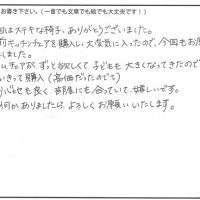 お書き下さい。(一言でも文章でも絵でも大丈夫です!)
はステキな椅子、ありがとうございました。
前キッチンチェアを購入し、大変気に入ったので、今回もお
しました。
ムチェアが、ずっと欲しくて、子どもも大きくなってきたので
いきって購入(高価だったので)
り心地も良く、部屋にも合っていて嬉しいです。
何かありましたら、よろしくお願いいたします。